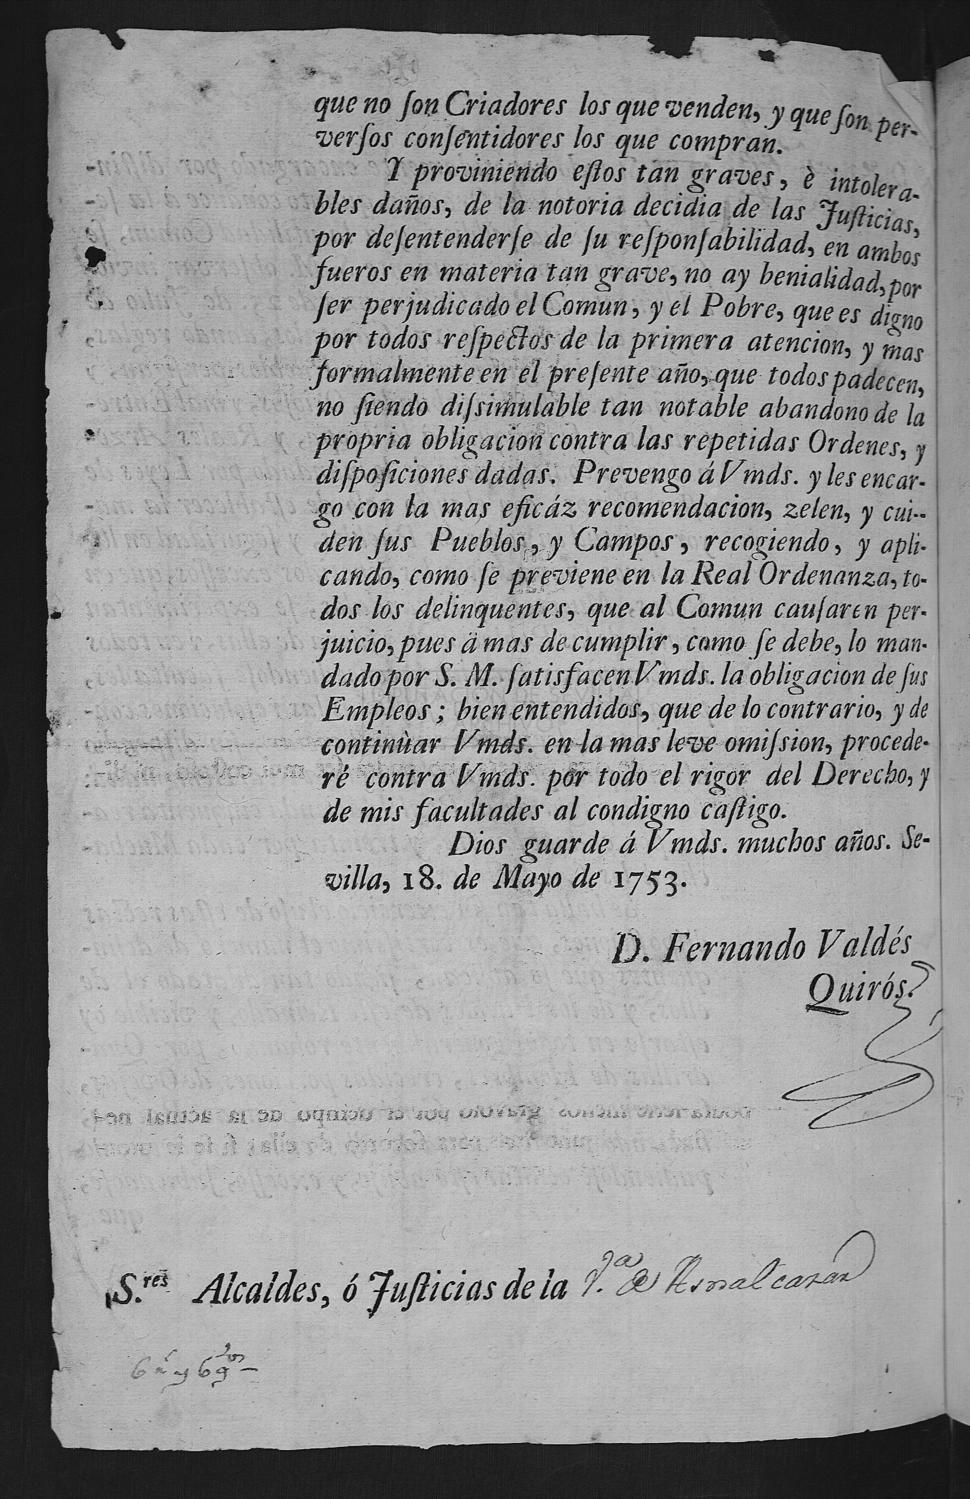 que no ſon Criadores los que venden, y que ſon per-
verſos conſentidores los que compran.
Y proviniendo eſtos tan graves, è intolera-
bles daños, de la notoria decidia de las Juſticias,
por deſentenderſe de ſu reſponſabilidad, en ambos
fueros en materia tan grave, no ay benialidad, por
ſer perjudicado el Comun, y el Pobre, que es digno
por todos reſpectos de la primera atencion, y mas
formalmente en el preſente año, que todos padecen,
no ſiendo diſsimulable tan notable abandono de la
propria obligacion contra las repetidas Ordenes, y
diſpoſiciones dadas. Prevengo á Vmds. y les encar-
go con la mas eficáz recomendacion, zelen, y cui-
den ſus Pueblos, y Campos, recogiendo, y apli-
cando, como ſe previene en la Real Ordenanza, to-
dos los delinquentes, que al Comun cauſaren per-
juicio, pues ä mas de cumplir, como ſe debe, lo man-
dado por S. M. ſatisfacen Vmds. la obligacion de ſus
Empleos; bien entendidos, que de lo contrario, y de
continùar Vmds. en la mas leve omiſsion, procede-
ré contra Vmds. por todo el rigor del Derecho, y
de mis facultades al condigno caſtigo.
Dios guarde á Vmds. muchos años. Se-
villa, 18. de Mayo de 1753.
D. Fernando Valdés
Quirós.
S.res Alcaldes, ó Juſticias de la V.a de Asnalcazar